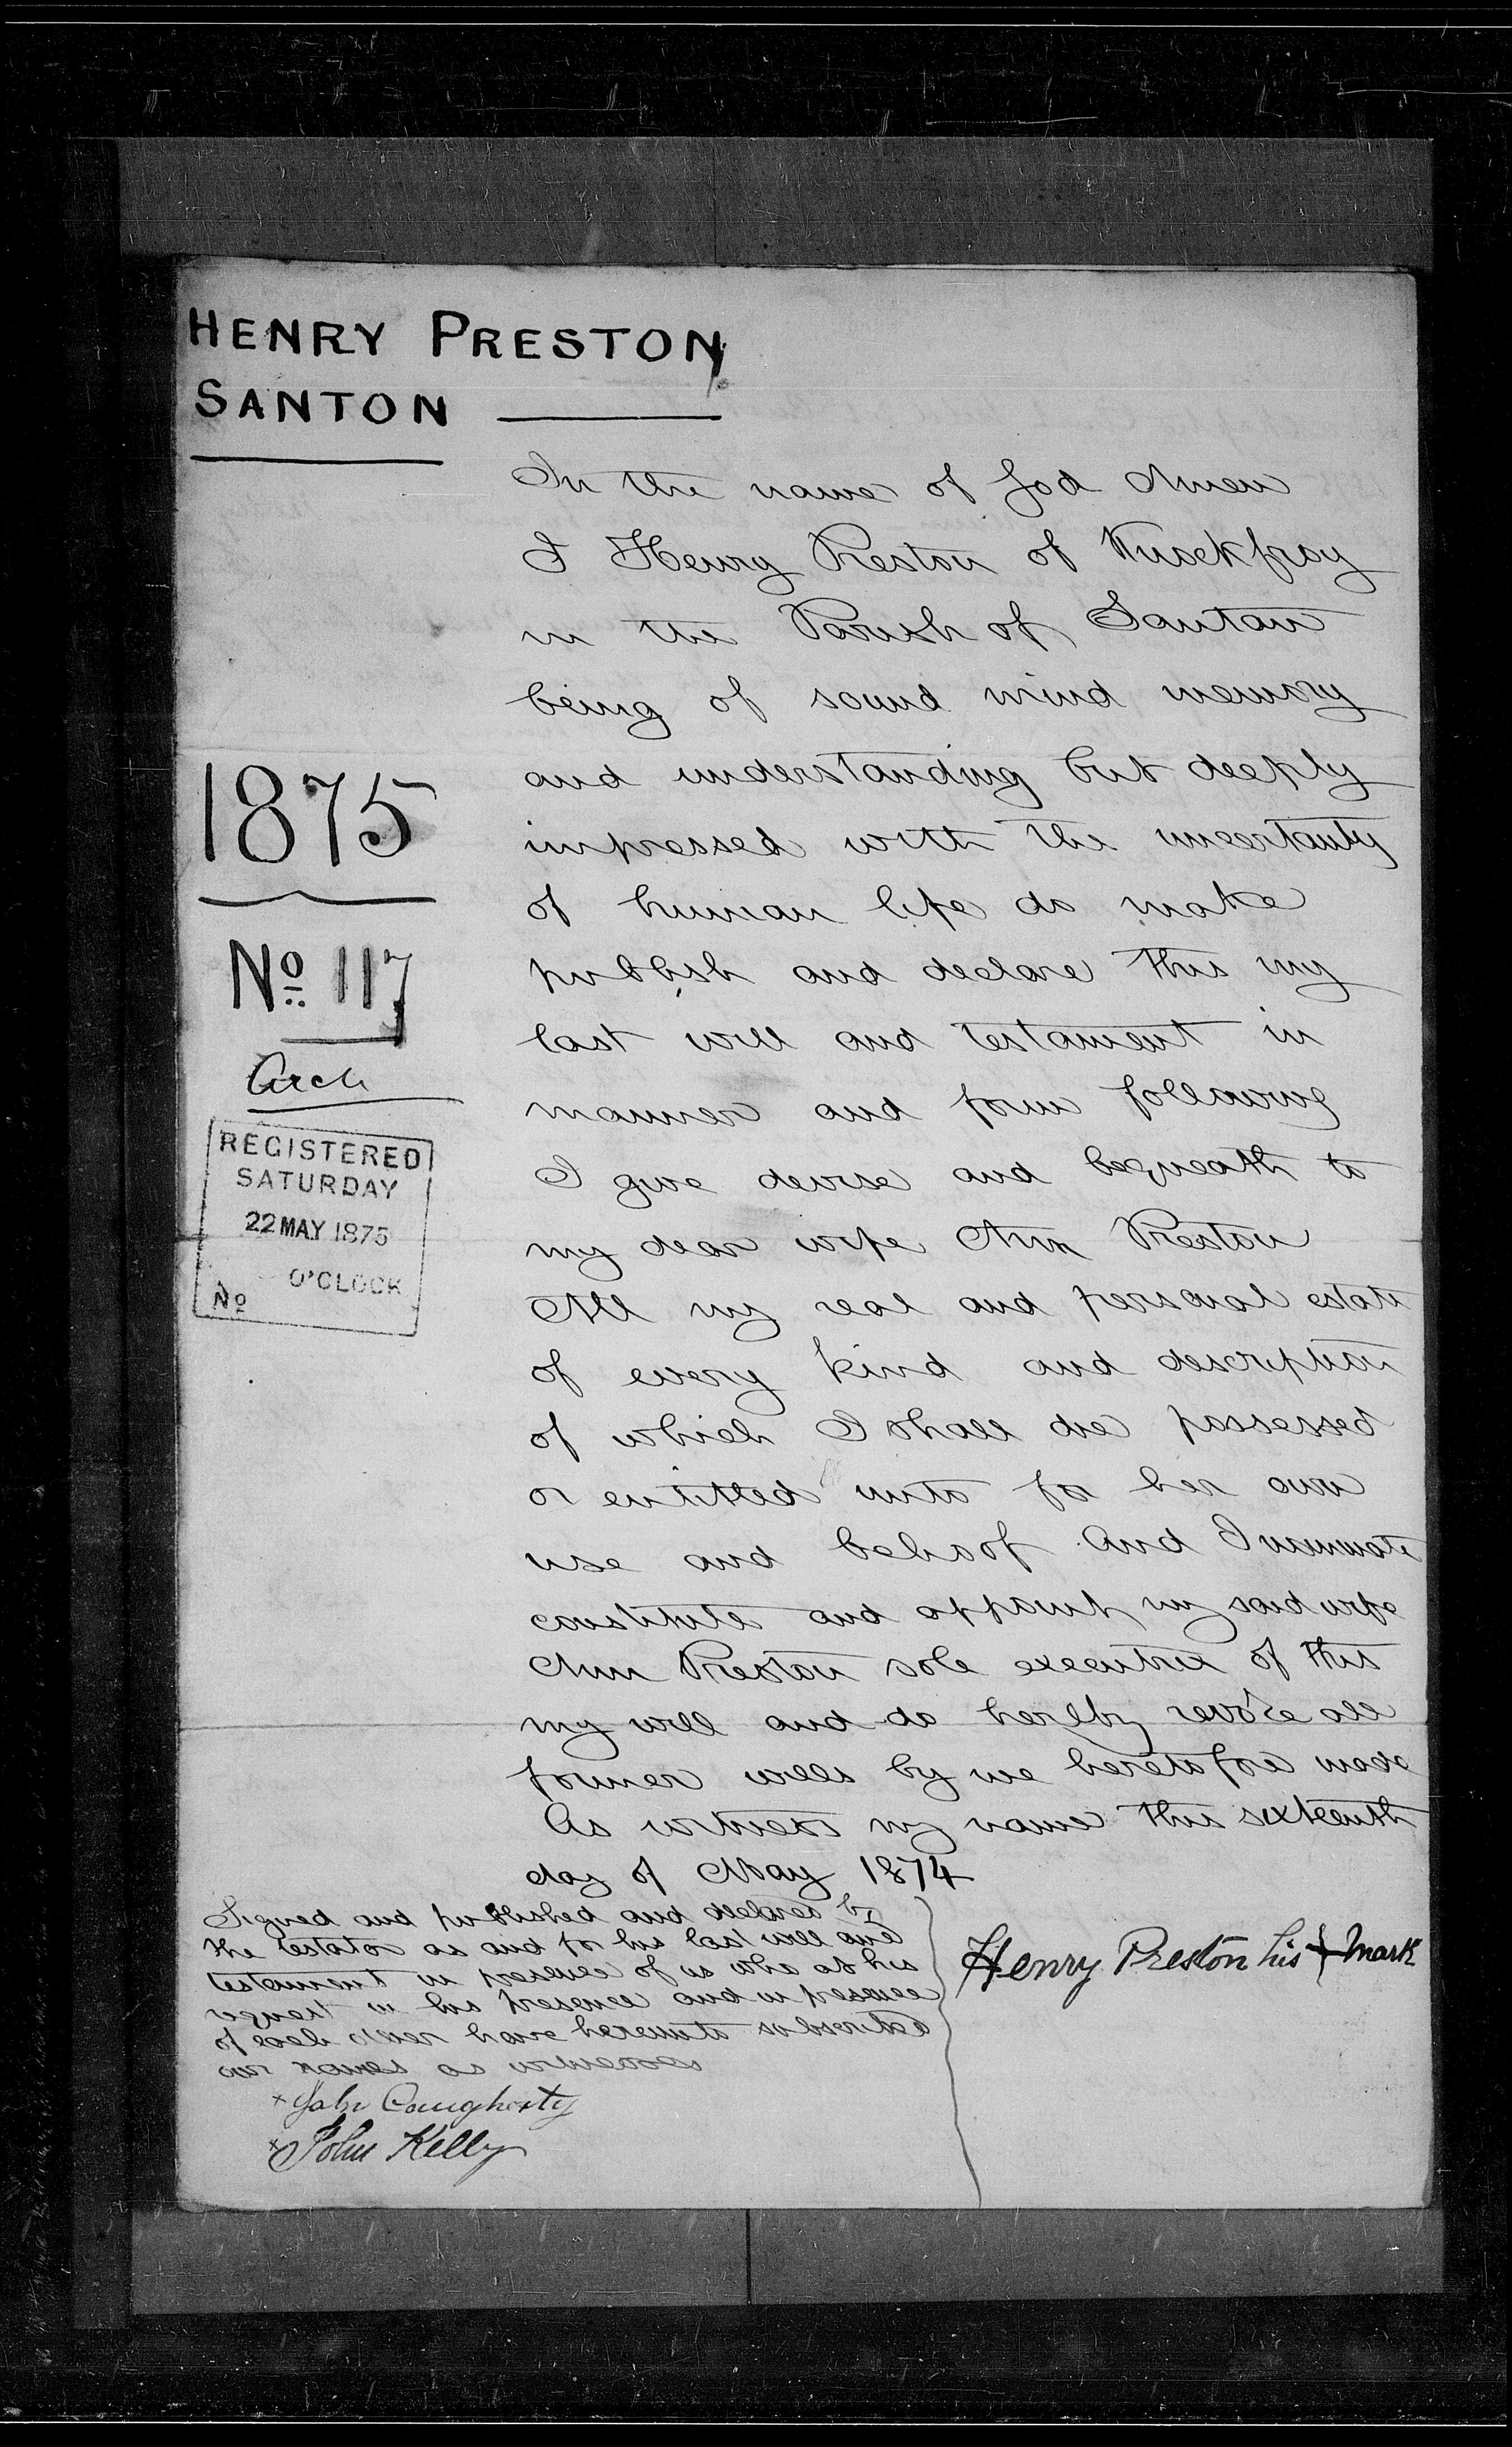 HENRY PRESTON
SANTON
In the name of God Amen
I Henry Preston of Knockfroy
in the Parish of Santan
being of sound mind memory
and understanding but deeply
impressed with the uncertainty
of human life do make
publish and declare this my
last will and testament in
manner and form following
I give devise and bequeath to
my dear wife Ann Preston
All my real and personal estate
of every kind and description
of which I shall die possessed
or entitled unto for her own
use and behoof And I nominate
constitute and appoint my said wife
Ann Preston sole executrix of this
my will and do hereby revoke all
former wills by me heretofore made
As witness my name this sixteenth
day of May 1874
1875
No 117
Arch
REGISTERED
SATURDAY
22 MAY 1875
O'CLOCK
No
Signed and published and declared by
the testator as and for his last will and
testament in presence of us who at his
request in his presence and in presence
of each other have hereunto subscribed
our names as witnesses
x John Caugherty
x John Kelly
Henry Preston his + mark